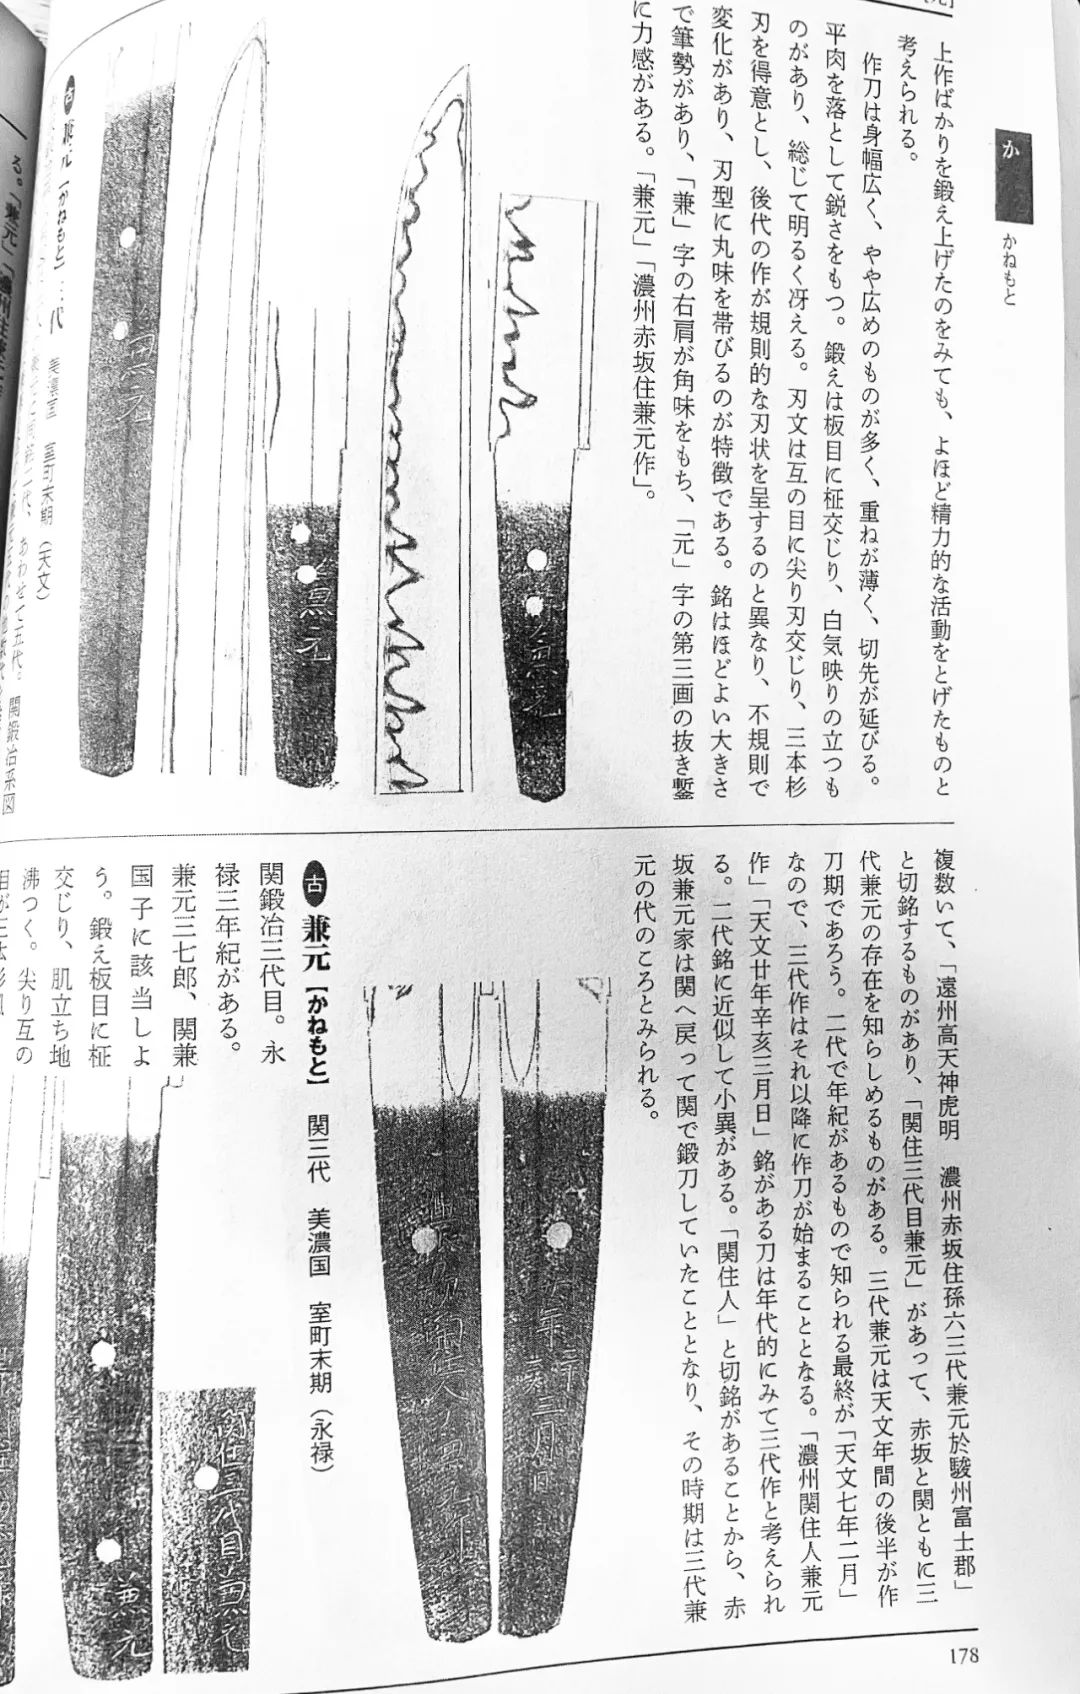 か
かねもと
上作ばかりを鍛え上げたのをみても、よほど精力的な活動をとげたものと
考えられる。
作刀は身幅広く、やや広めのものが多く、重ねが薄く、切先が延びる。
平肉を落として鋭さをもつ。鍛えは板目に柾交じり、白気映りの立つも
のがあり、総じて明るく冴える。刃文は互の目に尖り刃交じり、三本杉
刃を得意とし、後代の作が規則的な刃状を呈するのと異なり、不規則で
変化があり、刃型に丸味を帯びるのが特徴である。銘はほどよい大きさ
で筆勢があり、「兼」字の右肩が角味をもち、「元」字の第三画の抜き鏨
に力感がある。「兼元」「濃州赤坂住兼元作」。
兼元
兼元
兼元
古 兼元【かねもと】 代 美濃国 室町末期(天文)
二代、あわせて五代。関鍛冶系図
る。「兼元」「濃州住兼元
複数いて、「遠州高天神虎明 濃州赤坂住孫六三代兼元於駿州富士郡」
と切銘するものがあり、「関住三代目兼元」があって、赤坂と関ともに三
代兼元の存在を知らしめるものがある。三代兼元は天文年間の後半が作
刀期であろう。二代で年紀があるもので知られる最終が「天文七年二月」
なので、三代作はそれ以降に作刀が始まることとなる。「濃州関住人兼元
作」「天文廿年辛亥三月日」銘がある刀は年代的にみて三代作と考えられ
る。二代銘に近似して小異がある。「関住人」と切銘があることから、赤
坂兼元家は関へ戻って関で鍛刀していたこととなり、その時期は三代兼
元の代のころとみられる。
古 兼元【かねもと】 関三代 美濃国 室町末期(永禄)
関鍛冶三代目。永
禄三年紀がある。
兼元三七郎、関兼
国子に該当しよ
う。鍛え板目に柾
交じり、肌立ち地
沸つく。尖り互の
関住三代目兼元
兼元
178